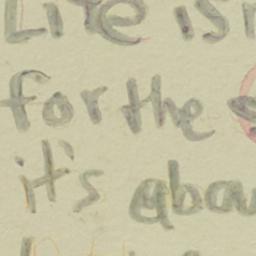 Life is
for the
it's abou